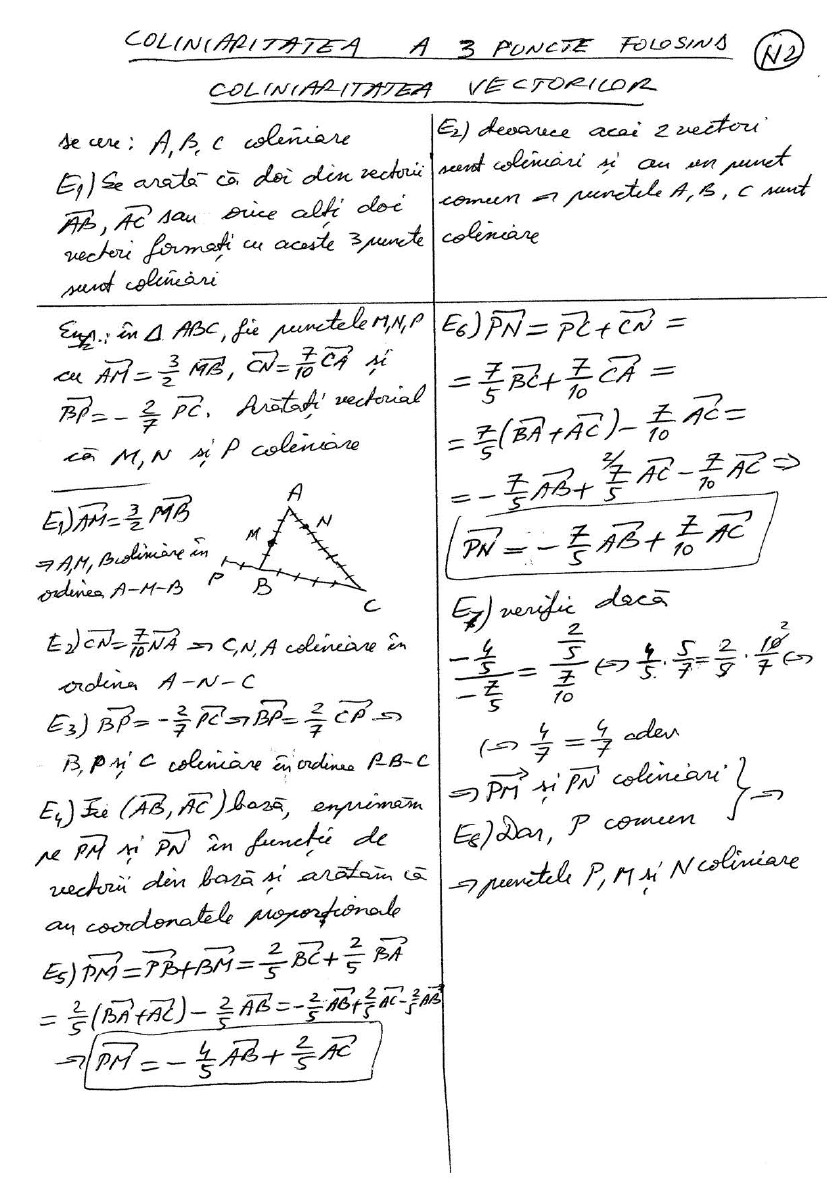 COLINIARITATEA A 3 PUNCTE FOLOSIND
N2
COLINIARITATEA VECTORILOR
se cere: A, B, C coliniare
E1) Se arată că doi din vectorii
AB, AC sau orice alți doi
vectori formați cu aceste 3 puncte
sunt coliniari
E2) deoarece acei 2 vectori
sunt coliniari și au un punct
comun => punctele A, B, C sunt
coliniare
în Δ ABC, fie punctele M, N, P
cu AM = 3/2 MB, CN = 7/10 CA și
BP = - 2/7 PC. Arătați vectorial
că M, N și P coliniare
E1) AM = 3/2 MB
=> A, M, B coliniare în
ordinea A-M-B
A
M
N
P
B
C
E2) CN = 7/10 NA => C, N, A coliniare în
ordinea A-N-C
E3) BP = - 2/7 PC => BP = 2/7 CP =>
B, P și C coliniare în ordinea P-B-C
E4) Fie (AB, AC) bază, exprimăm
pe PM și PN în funcție de
vectorii din bază și arătăm că
au coordonatele proporționale
E5) PM = PB + BM = 2/5 BC + 2/5 BA
= 2/5 (BA + AC) - 2/5 AB = - 2/5 AB + 2/5 AC - 2/5 AB
=> PM = - 4/5 AB + 2/5 AC
E6) PN = PC + CN =
= 7/5 BC + 7/10 CA =
= 7/5 (BA + AC) - 7/10 AC =
= - 7/5 AB + 2/ 7/5 AC - 7/10 AC =>
PN = - 7/5 AB + 7/10 AC
E7) verific dacă
(-4/5)/(-7/5) = (2/5)/(7/10) <=> 4/5 · 5/7 = 2/5 · 10/7 2 <=>
<=> 4/7 = 4/7 adev
=> PM și PN coliniari } =>
E8) Dar, P comun
=> punctele P, M și N coliniare